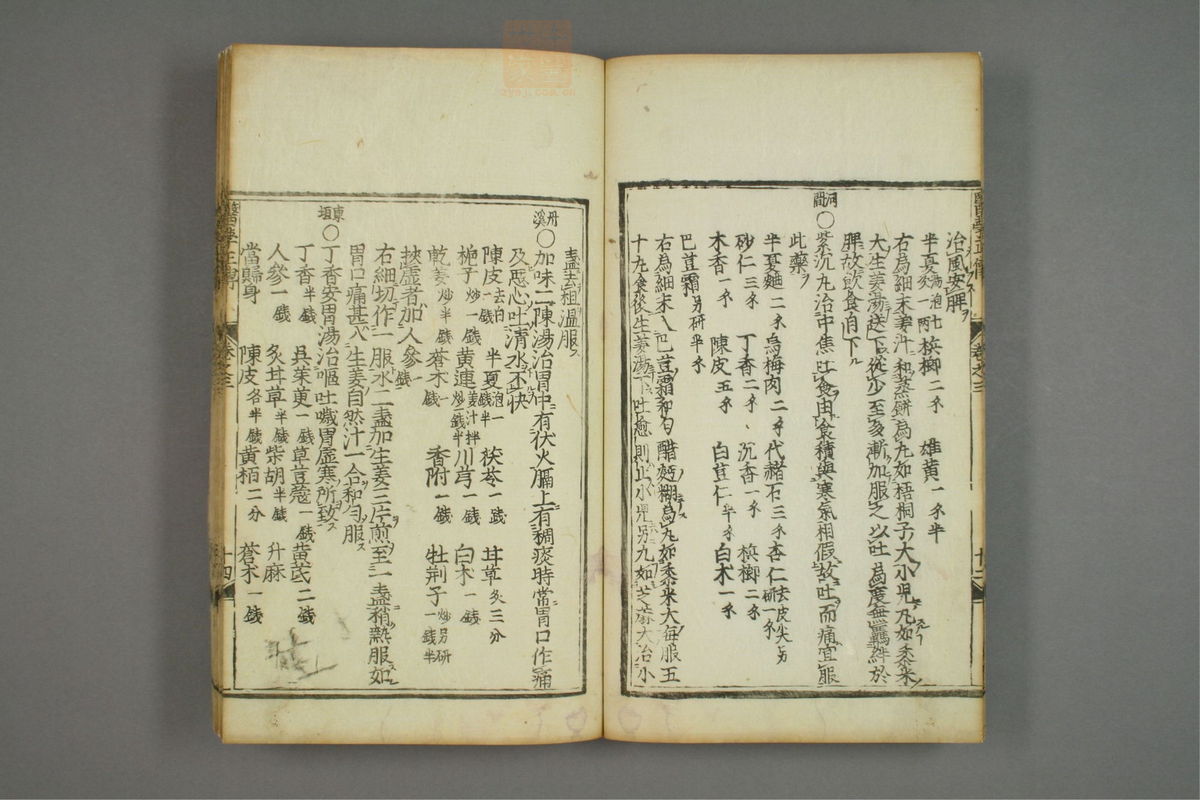 治風安脾
半夏 湯泡七次一兩 檳榔二錢 雄黃一錢半
右為細末姜汁和蒸餅為丸如梧桐子大小児丸如黍米
大生姜湯送下從少至多漸加服之以吐為度無羈絆於
脾故飲食自下
河間
〇紫沉丸治中焦吐食由食積與寒氣相假故吐而痛宜服
此藥
半夏麯二錢 烏梅肉二錢 代赭石三錢 杏仁去皮尖另研一錢
砂仁三錢 丁香二錢 沉香一錢 檳榔二錢
木香一錢 陳皮五錢 白荳仁半錢 白朮一錢
巴荳霜另研半錢
右為細末入巴荳霜和勻醋麪糊為丸如黍米大每服五
十丸食後生姜湯下吐愈則止小児另丸如芝蔴大治小
盞去粗溫服
丹溪
〇加味二陳湯治胃中有伏火膈上有稠痰時常胃口作痛
及惡心吐清水不快
陳皮去白 半夏泡一錢半 茯苓一錢 甘草炙三分
梔子炒一錢 黃連姜汁拌炒一錢半 川芎一錢 白朮一錢
乾姜炒半錢 蒼朮一錢 香附一錢 牡荊子炒另研一錢半
挾虛者加人參一錢
右細切作一服水二盞加生姜三片煎至一盞稍熱服如
胃口痛甚入生姜自然汁一合和勻服
東垣
〇丁香安胃湯治嘔吐噦胃虛寒所致
丁香半錢 吳茱萸一錢 草荳蔻一錢 黃芪二錢
人參一錢 炙甘草半錢 柴胡半錢 升麻
當歸身 陳皮各半錢 黃栢二分 蒼朮一錢